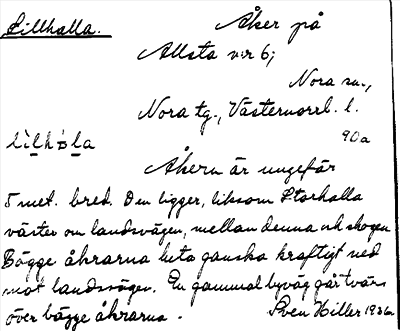 Lillhalla. Åker på
Allsta v:r 6;
Nora sn.,
Nora tg., Västernorrl. l.
90a
Åkern är ungefär
5 met. bred. Den ligger, liksom Storhalla
väster om landsvägen, mellan denna och skogen.
Bägge åkrarna luta ganska kraftigt ned
mot landsvägen. En gammal byväg går tvärs
över bägge åkrarna. Sven Hiller 1936